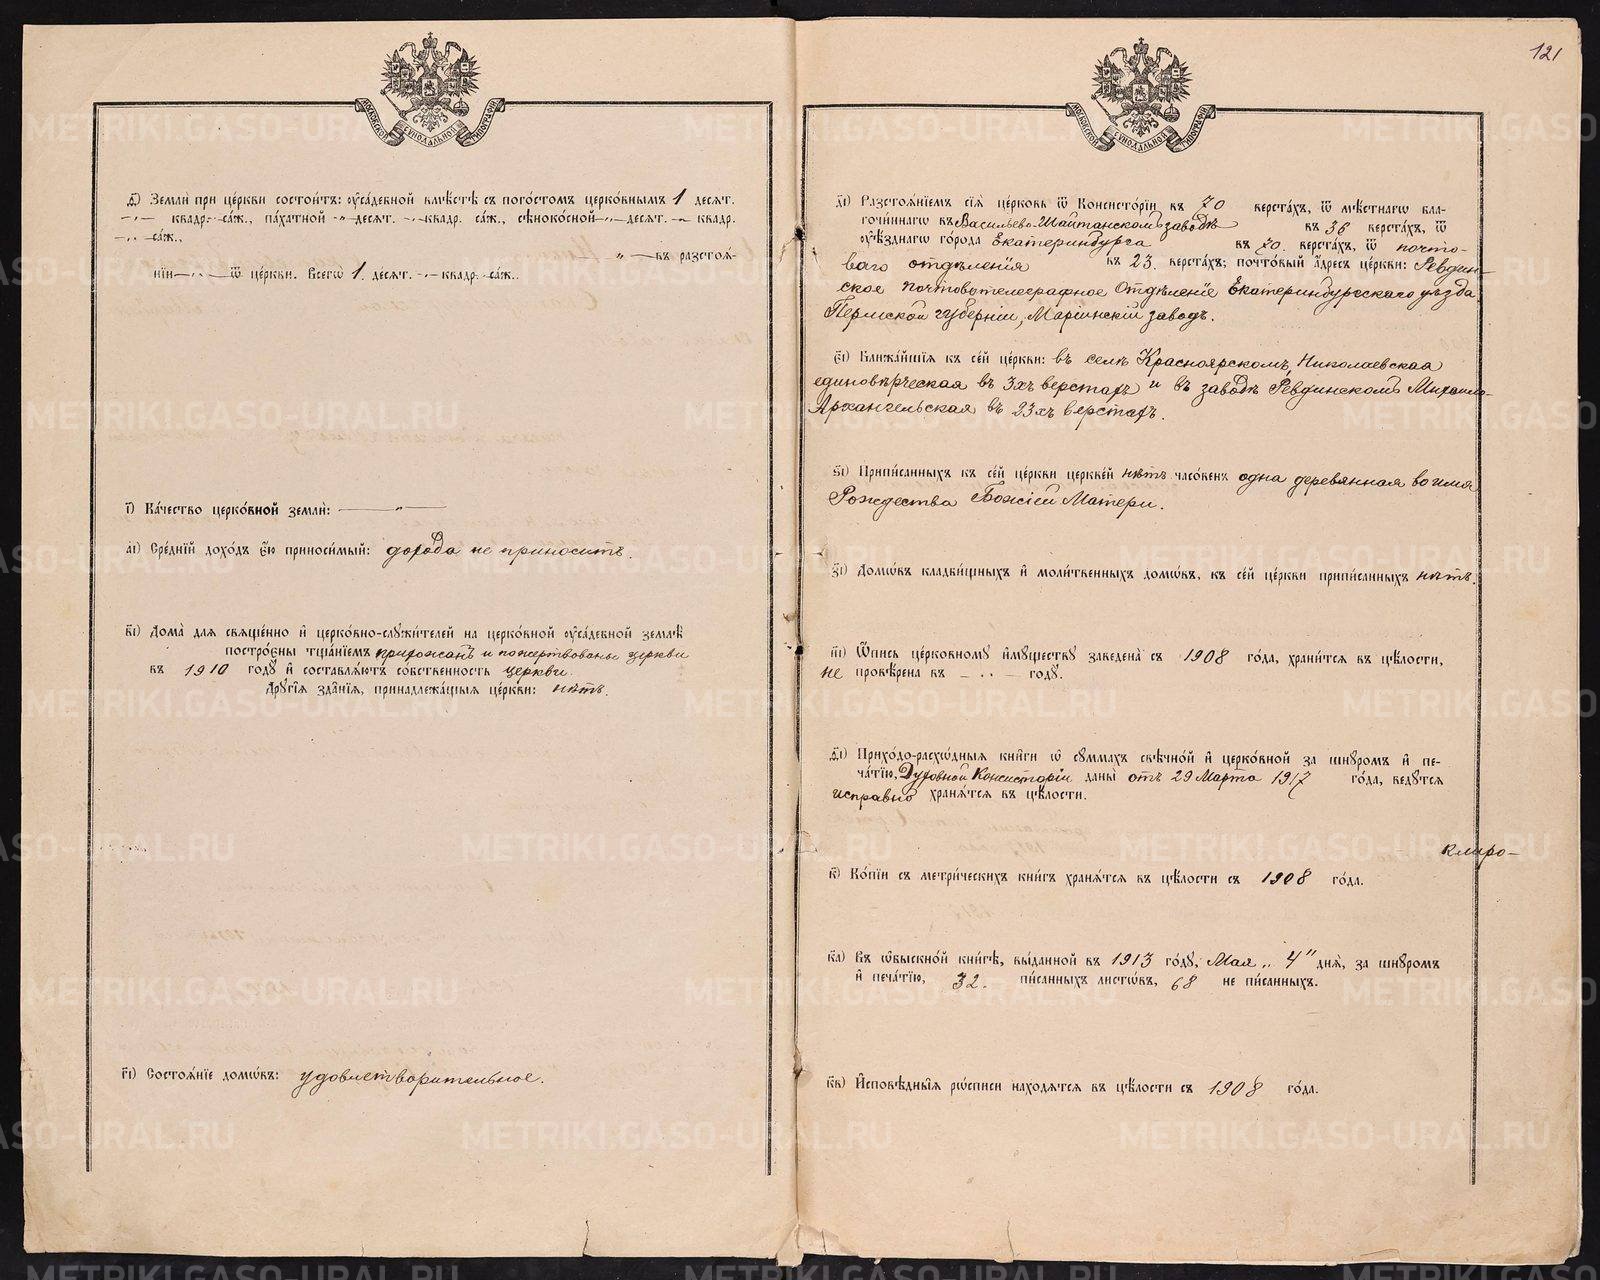 121
МОСКОВСКОЙ СѴНОДАЛЬНОЙ ТИПОГРАФІИ
МОСКОВСКОЙ СѴНОДАЛЬНОЙ ТИПОГРАФІИ
ѳ҃) Землѝ при це́ркви состои́тъ: ᲂу҆са́дебной вмѣ́стѣ съ пого́стомъ церко́внымъ 1 десѧт.
-〃- квадр. са́ж., па́хатной -〃- десѧт. -〃- квадр. са́ж., сѣноко́сной -〃- десѧт. -〃- квадр.
-〃- са́ж.,
-〃- въ разстоѧ́-
нїи -〃- ѿ це́ркви. Всегѡ̀ 1. десѧт. -〃- квадр. са́ж.
і҃) Ка́чество церко́вной землѝ: -〃-
а҃і) Сре́днїй дохо́дъ е҆́ю приноси́мый: дохода не приноситъ.
в҃і) Дома̀ для свѧще́нно и҆ церко́вно-слꙋжи́телей на церко́вной ᲂу҆са́дебной землѣ̀
постро́ены тща́нїемъ прихожанъ и пожертвованы церкви
въ 1910 годꙋ̀ и҆ составлѧ́ютъ со́бственность церкви.
Дрꙋгі̑ѧ зда̑нїѧ, принадлежа́щыѧ це́ркви: нѣтъ.
г҃і) Состоѧ́нїе домѡ́въ: удовлетворительное.
д҃і) Разстоѧ́нїемъ сїѧ̀ це́рковь ѿ Консисто́рїи въ 70 верста́хъ, ѿ мѣ́стнагѡ бла-
гочи́ннагѡ въ Васильево-Шайтанскомъ заводѣ въ 36 верста́хъ, ѿ
ᲂу҆ѣ́зднагѡ го́рода Екатеринбурга въ 70. верста́хъ, ѿ почто-
ваго отдѣленія въ 23. верста́хъ; почто́вый а҆́дресъ це́ркви: Ревдин-
ское почтовотелеграфное Отдѣленіе Екатеринбургскаго уѣзда
Пермской губерніи, Маріинскій заводъ.
є҃і) Ближа́йшїѧ къ се́й це́ркви: въ селѣ Красноярскомъ, Николаевская
единовѣрческая въ 3хъ верстахъ и въ заводѣ Ревдинскомъ Михаило-
Архангельская въ 23хъ верстахъ.
ѕ҃і) Припи́санныхъ къ се́й це́ркви церкве́й нѣтъ часо́венъ одна деревянная во имя
Рождества Божіей Матери.
з҃і) Домѡ́въ кладби́щныхъ и҆ моли́твенныхъ домѡ́въ, къ се́й це́ркви припи́санныхъ нѣтъ.
и҃і) Ѻ҆́пись церко́вномꙋ и҆мꙋ́ществꙋ заведена̀ съ 1908 го́да, храни́тсѧ въ цѣ́лости,
не провѣ́рена въ -〃- годꙋ̀.
ѳ҃і) Прихо́до-расхѡ́дныѧ кни̑ги ѡ҆ сꙋ́ммахъ свѣчно́й и҆ церко́вной за шнꙋро́мъ и҆ пе-
ча́тїю, Духовной Консисторіи даны̀ отъ 29 Марта 1917 го́да, ведꙋ́тсѧ
исправно хранѧ́тсѧ въ цѣ́лости.
клиро-
к҃) Ко́пїи съ метри́ческихъ кни́гъ хранѧ́тсѧ въ цѣ́лости съ 1908 го́да.
к҃а) Въ ѡ҆быскно́й кни́гѣ, вы́данной въ 1913 годꙋ̀, Мая „4" днѧ̀, за шнꙋро́мъ
и҆ печа́тїю, 32. пи́санныхъ листѡ́въ, 68 не пи́санныхъ.
к҃в) И҆сповѣ̑дныѧ рѡ́списи нахо́дѧтсѧ въ цѣ́лости съ 1908 го́да.
METRIKI.GASO-URAL.RU